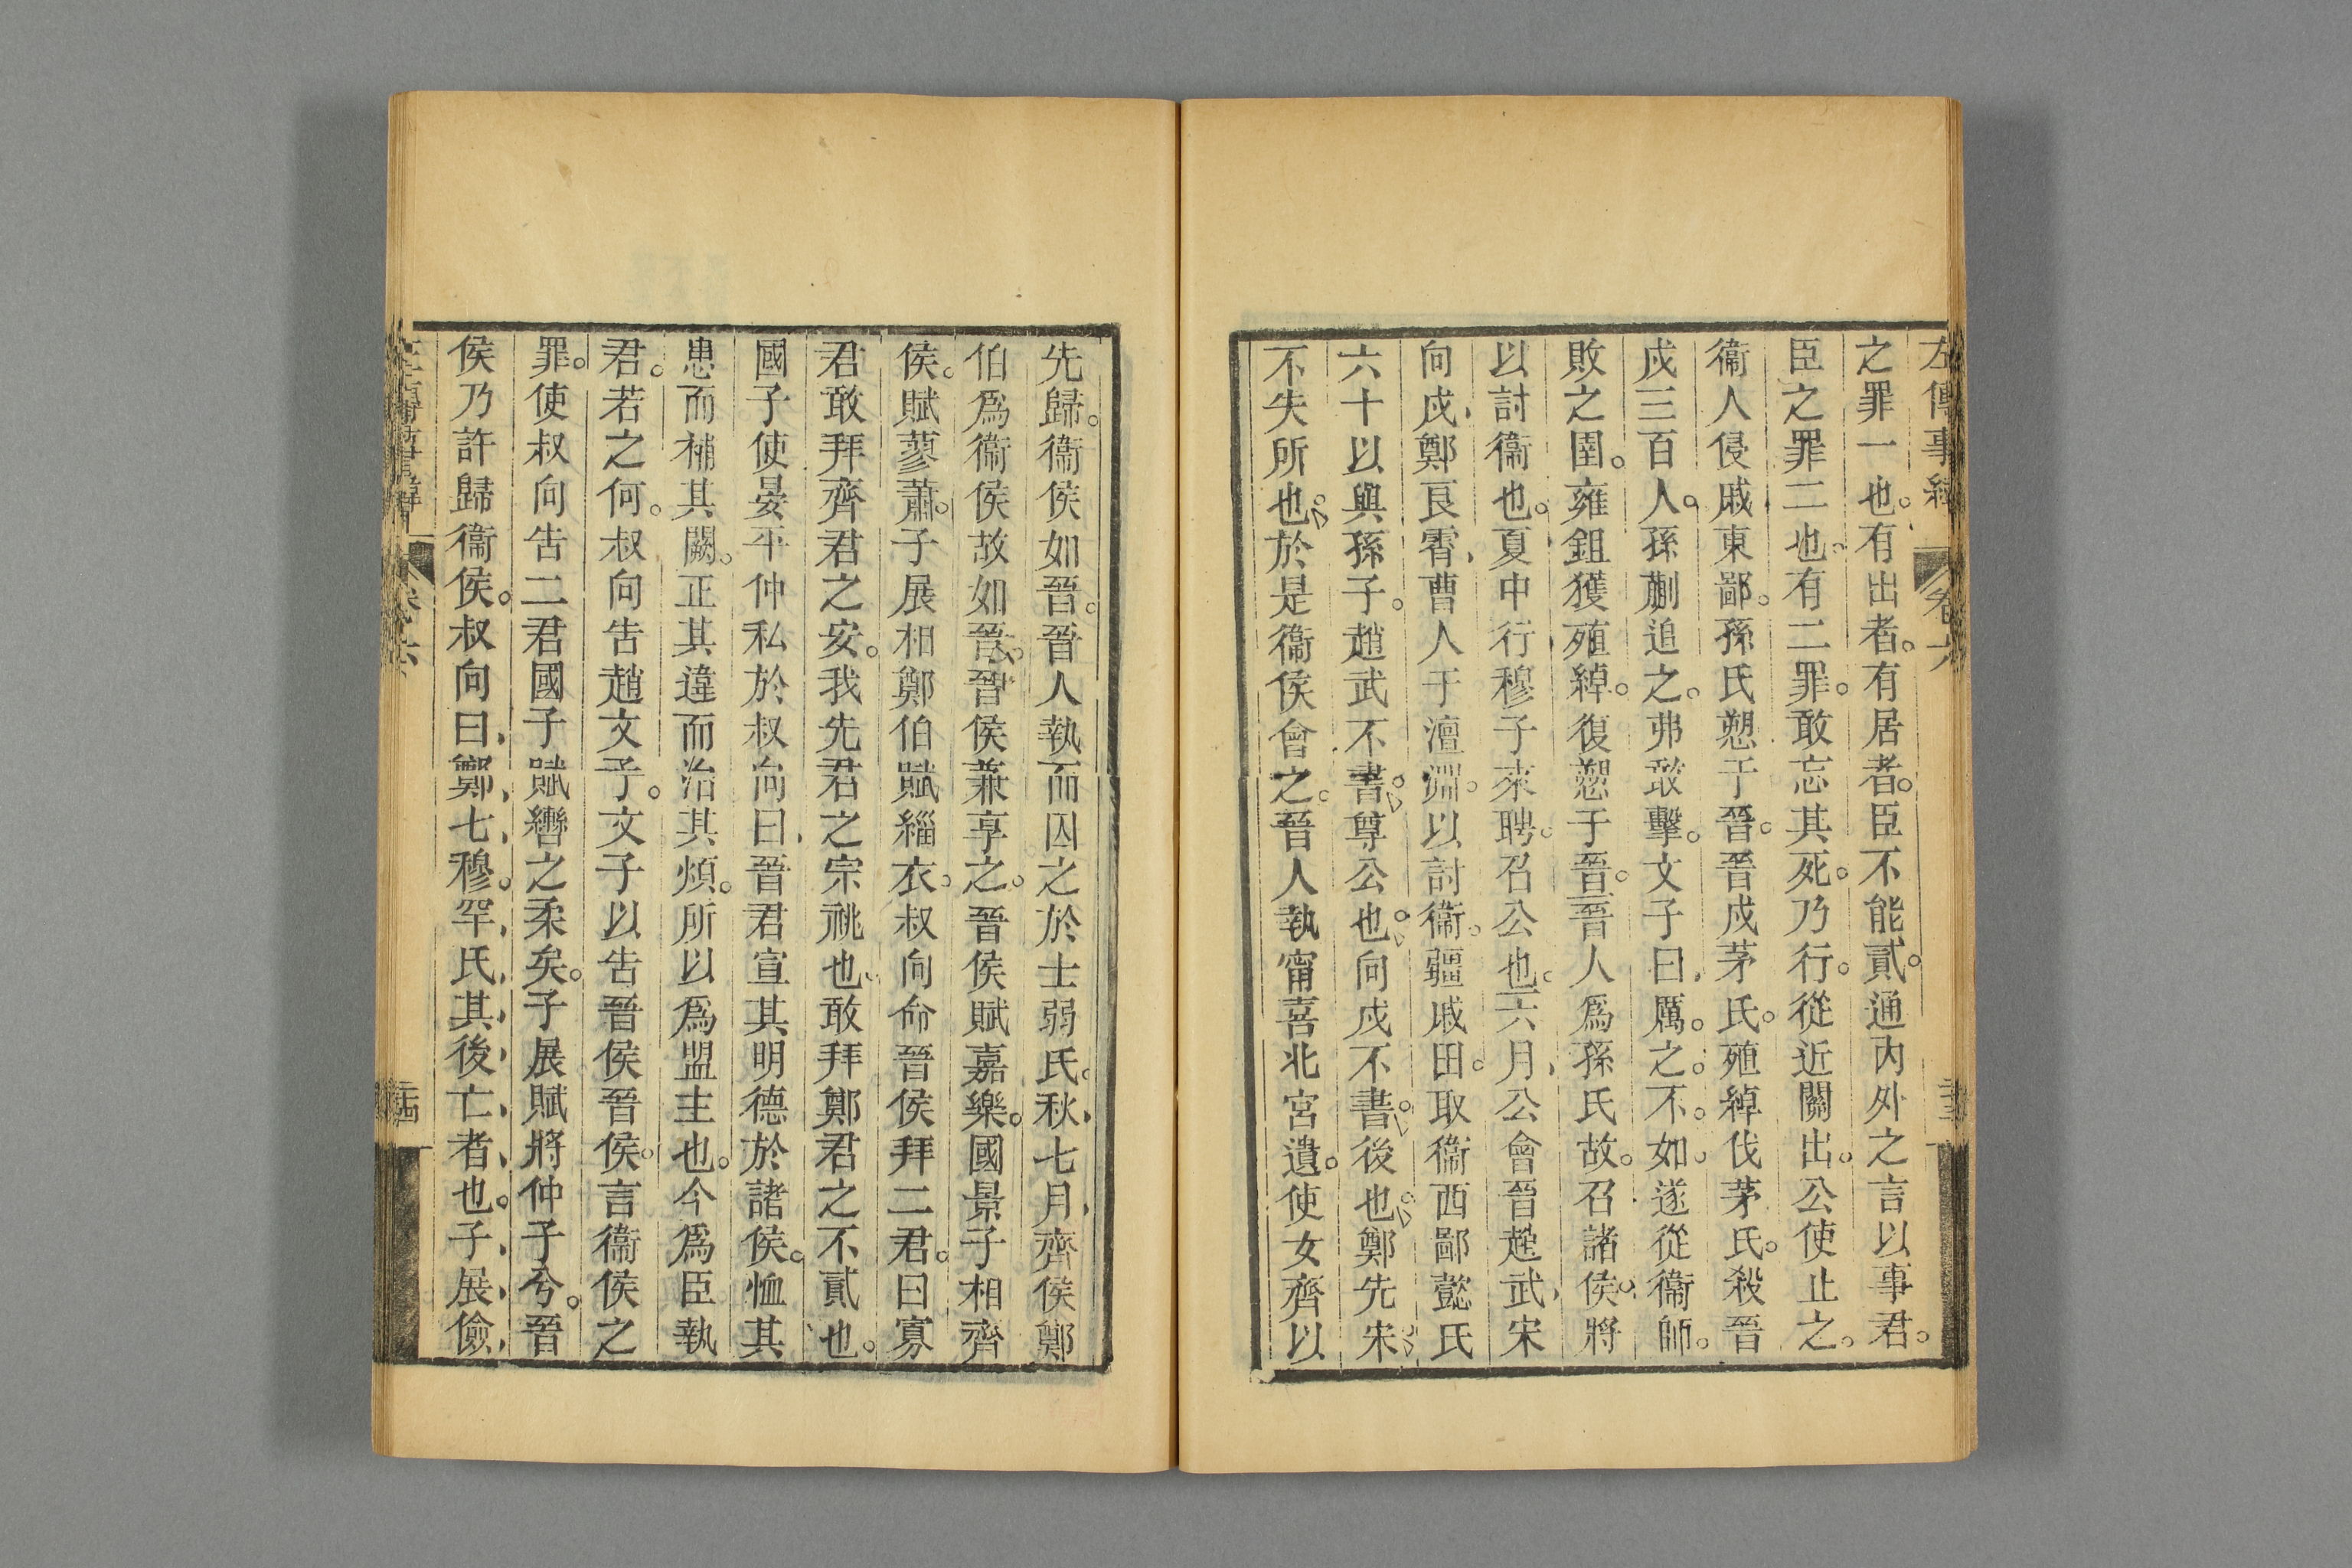 左傳事緯 卷六
之罪一也。有出者。有居者。臣不能貳。通內外之言以事君。
臣之罪二也。有二罪。敢忘其死。乃行。從近關出。公使止之。
衞人侵戚東鄙。孫氏愬于晉。晉戍茅氏。殖綽伐茅氏。殺晉
戍三百人。孫蒯追之。弗敢擊。文子曰、厲。之。不。如。遂從衞師。
敗之圉。雍鉏獲殖綽。復愬于晉。晉人爲孫氏故。召諸侯。將
以討衞也。夏、中行穆子來聘。召公也。六月、公會晉趙武、宋
向戍、鄭良霄、曹人于澶淵。以討衞。疆戚田。取衞西鄙懿氏
六十以與孫子。趙武不書。尊公也。向戍不書。後也。鄭先宋。
不失所也。於是衞侯會之。晉人執甯喜北宮遺。使女齊以
先歸。衞侯如晉。晉人執而囚之於士弱氏。秋、七月、齊侯鄭
伯爲衞侯故如晉。晉侯兼享之。晉侯賦嘉樂。國景子相齊
侯。賦蓼蕭。子展相鄭伯賦緇衣。叔向命晉侯拜二君。曰寡
君敢拜齊君之安。我先君之宗祧也、敢拜鄭君之不貳也。
國子使晏平仲私於叔向曰、晉君宣其明德於諸侯。恤其
患而補其闕。正其違而治其煩。所以爲盟主也。今爲臣執
君。若之何。叔向告趙文子。文子以告晉侯。晉侯。言衞侯之
罪。使叔向告二君。國子賦轡之柔矣。子展賦將仲子兮。晉
侯乃許歸衞侯。叔向曰、鄭、七、穆。罕、氏、其、後、亡、者、也。子、展、儉、